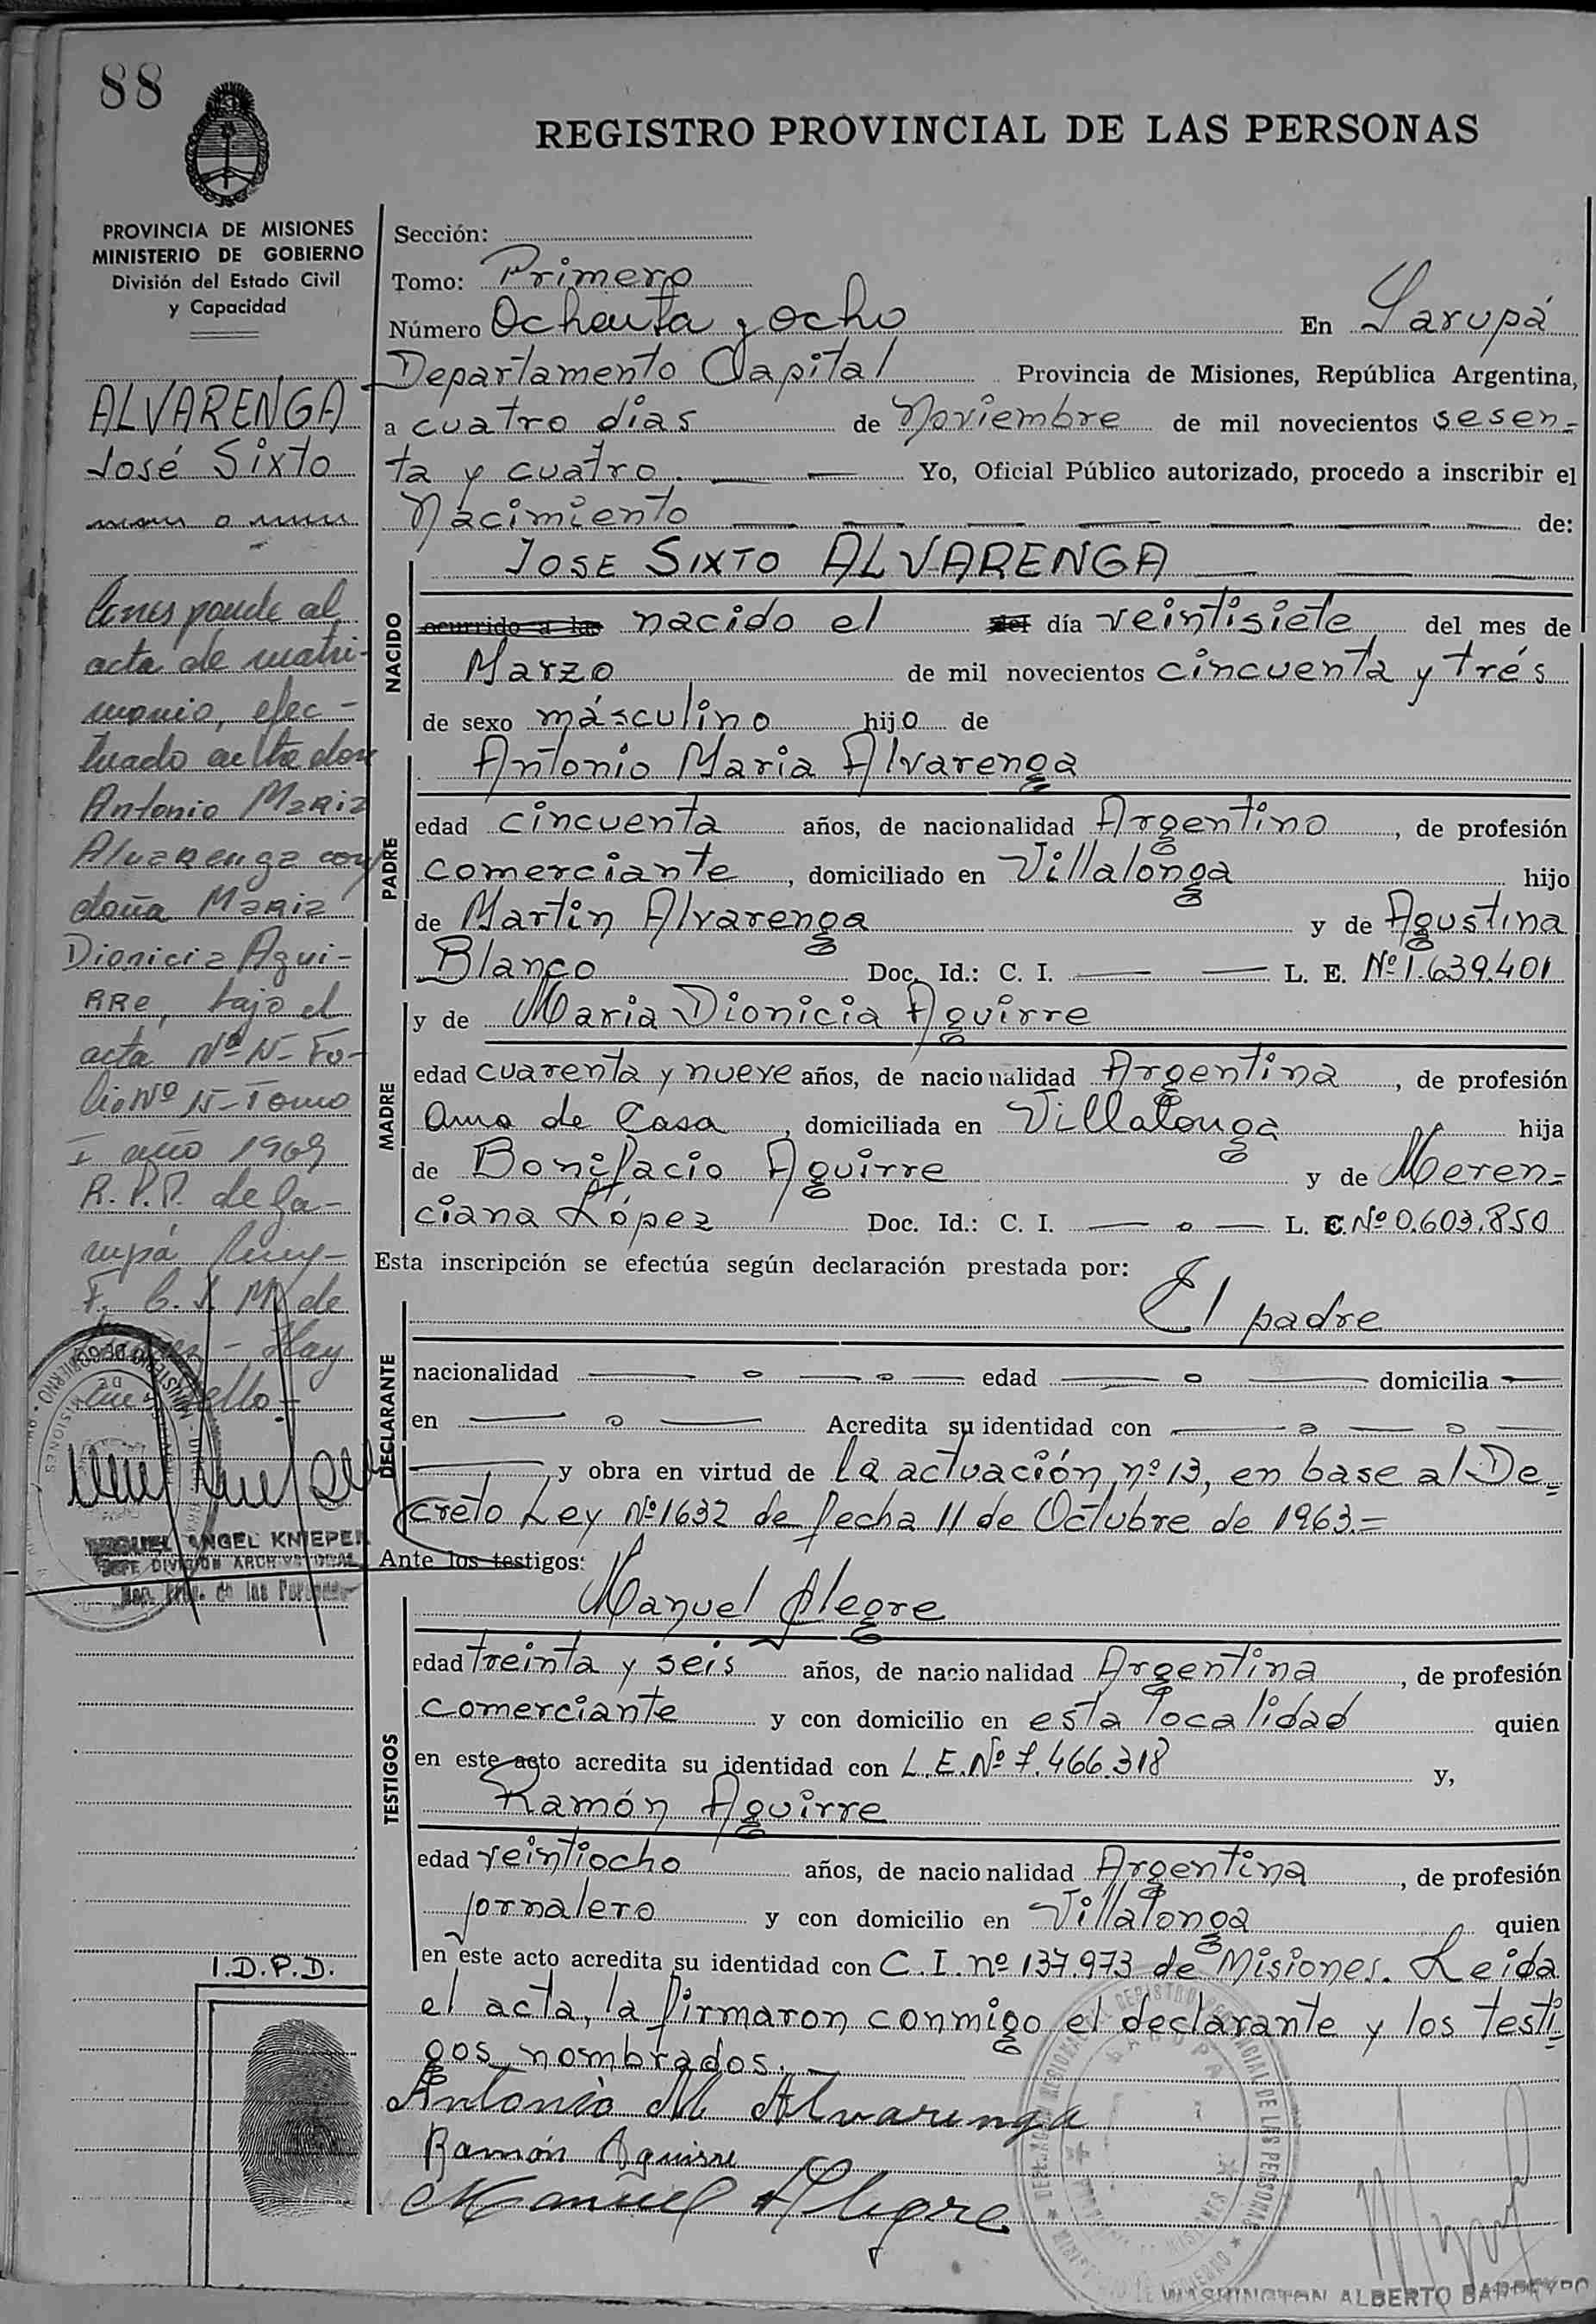 88
REGISTRO PROVINCIAL DE LAS PERSONAS
PROVINCIA DE MISIONES
MINISTERIO DE GOBIERNO
División del Estado Civil
y Capacidad
ALVARENGA
José Sixto
acta de matri-
monio, efec-
tuado don
Antonio Maria
Alvarenga con
doña Maria
Dionicia Agui-
RRe, bajo el
acta Nº 15- Fo-
lio Nº 15- Tomo
I año 1969
R.P.P. de Ga-
rupá
de
Hay
sello-
MIGUEL ANGEL KNIEPER
JEFE DIVISION
Reg. Prov. de las Personas
I.D.P.D.
Sección:
Tomo: Primero
Número Ochenta y ocho En Garupá
Departamento Capital Provincia de Misiones, República Argentina,
a cuatro dias de Noviembre de mil novecientos sesen=
ta y cuatro. Yo, Oficial Público autorizado, procedo a inscribir el
Nacimiento de:
NACIDO
JOSE SIXTO ALVARENGA
ocurrido a las nacido el del día veintisiete del mes de
Marzo de mil novecientos cincuenta y trés
de sexo másculino hijo de
PADRE
Antonio Maria Alvarenga
edad cincuenta años, de nacionalidad Argentino, de profesión
comerciante, domiciliado en Villalonga hijo
de Martin Alvarenga y de Agustina
Blanco Doc. Id.: C. I. L. E. Nº 1.639.401
MADRE
y de Maria Dionicia Aguirre
edad cuarenta y nueve años, de nacionalidad Argentina, de profesión
Ama de Casa, domiciliada en Villalonga hija
de Bonifacio Aguirre y de Meren=
ciana López Doc. Id.: C. I. L. C. Nº 0.603.850
Esta inscripción se efectúa según declaración prestada por:
DECLARANTE
El padre
nacionalidad edad domicilia
en Acredita su identidad con
y obra en virtud de la actuación nº 13, en base al De=
creto Ley Nº 1632 de fecha 11 de Octubre de 1963.=
Ante los testigos:
TESTIGOS
Manuel Alegre
edad treinta y seis años, de nacionalidad Argentina, de profesión
comerciante y con domicilio en esta localidad quien
en este acto acredita su identidad con L.E. Nº 7.466.318 y,
Ramón Aguirre
edad veintiocho años, de nacionalidad Argentina, de profesión
jornalero y con domicilio en Villalonga quien
en este acto acredita su identidad con C.I. nº 137.973 de Misiones. Leida
el acta, la firmaron conmigo el declarante y los testi=
gos nombrados.
Antonio M Alvarenga
Ramón Aguirre
Manuel Alegre
WASHINGTON ALBERTO BARREYRO